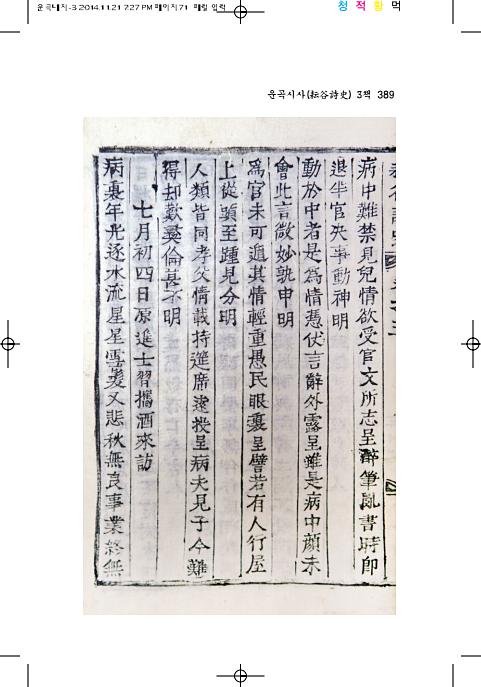 운곡시사-3 2014.11.21 7:27 PM 페이지71 매킬 입력
청 적 황 먹
운곡시사(耘谷詩史) 3책 389
病中難禁見兒情欲受官文所志呈醉筆亂書時卽
退半官失事動神明
動於中者是爲情憑伏言辭外露呈雖是病中顔未
會此言微妙孰申明
爲官未可遁其情輕重愚民眼裏呈譬若有人行屋
上從頭至踵見分明
人類皆同孝父情載持筵席遠投呈病夫見子今難
得却歎彛倫甚不明
七月初四日原進士習攜酒來訪
病裏年光逐水流星星雪髮又悲秋無良事業終無